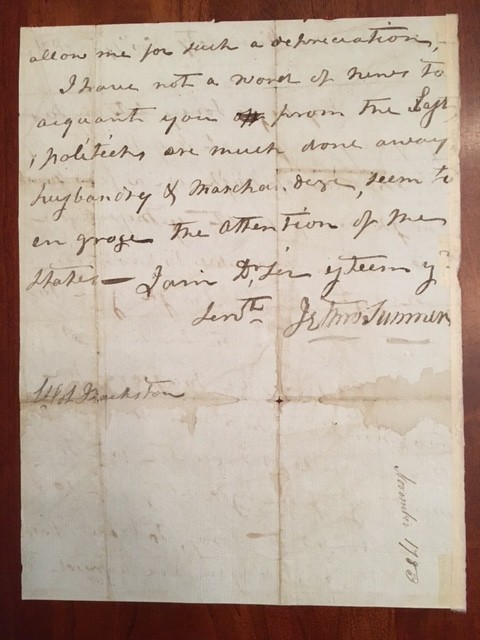 allow me for such a depreciation,
I have not a word of news to
acquant you off from the East,
politicks are much done away
husbandry & Marchandize, seem to
en groze the Attention of the
States — I am Dr Sir esteem yr
Servth Jethro Sumner
November 1783